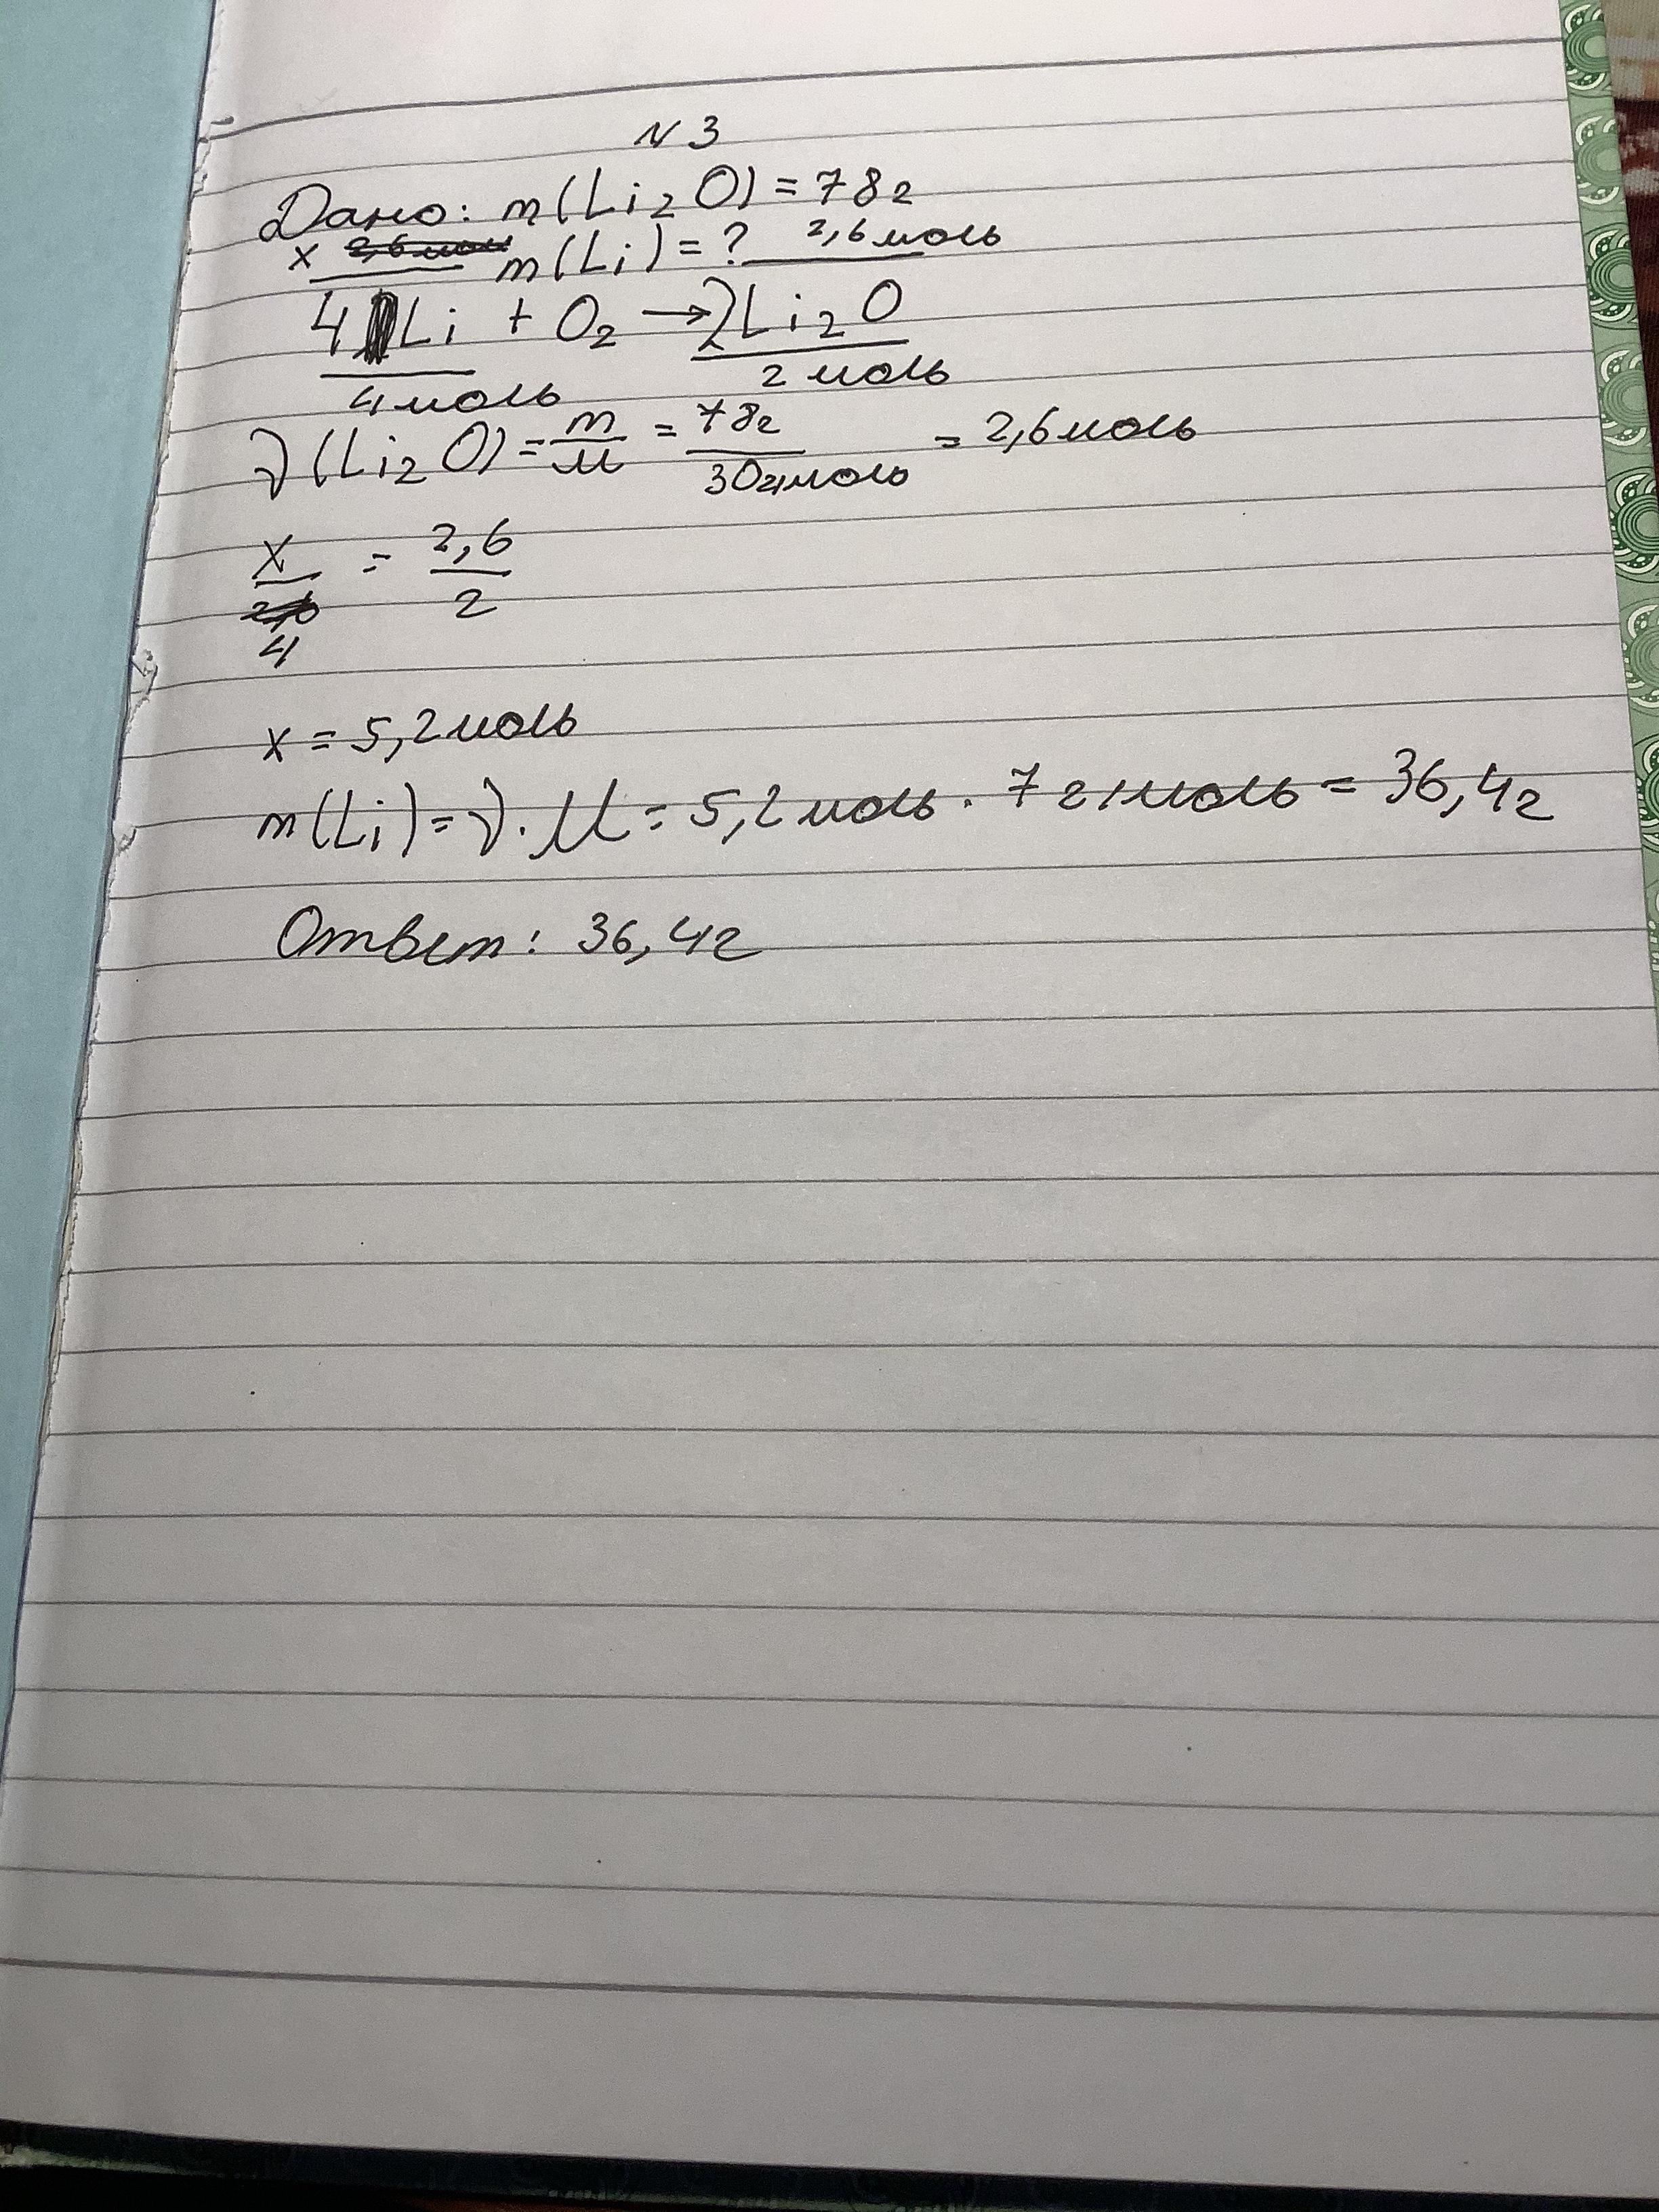 N 3
Дано: m(Li2O) = 78г
x m(Li) = ? 2,6 моль
4Li + O2 → 2Li2O
4 моль 2 моль
ν(Li2O) = m/M = 78г/30г/моль = 2,6 моль
x/4 = 2,6/2
x = 5,2 моль
m(Li) = ν · M = 5,2 моль · 7 г/моль = 36,4г
Ответ: 36,4г